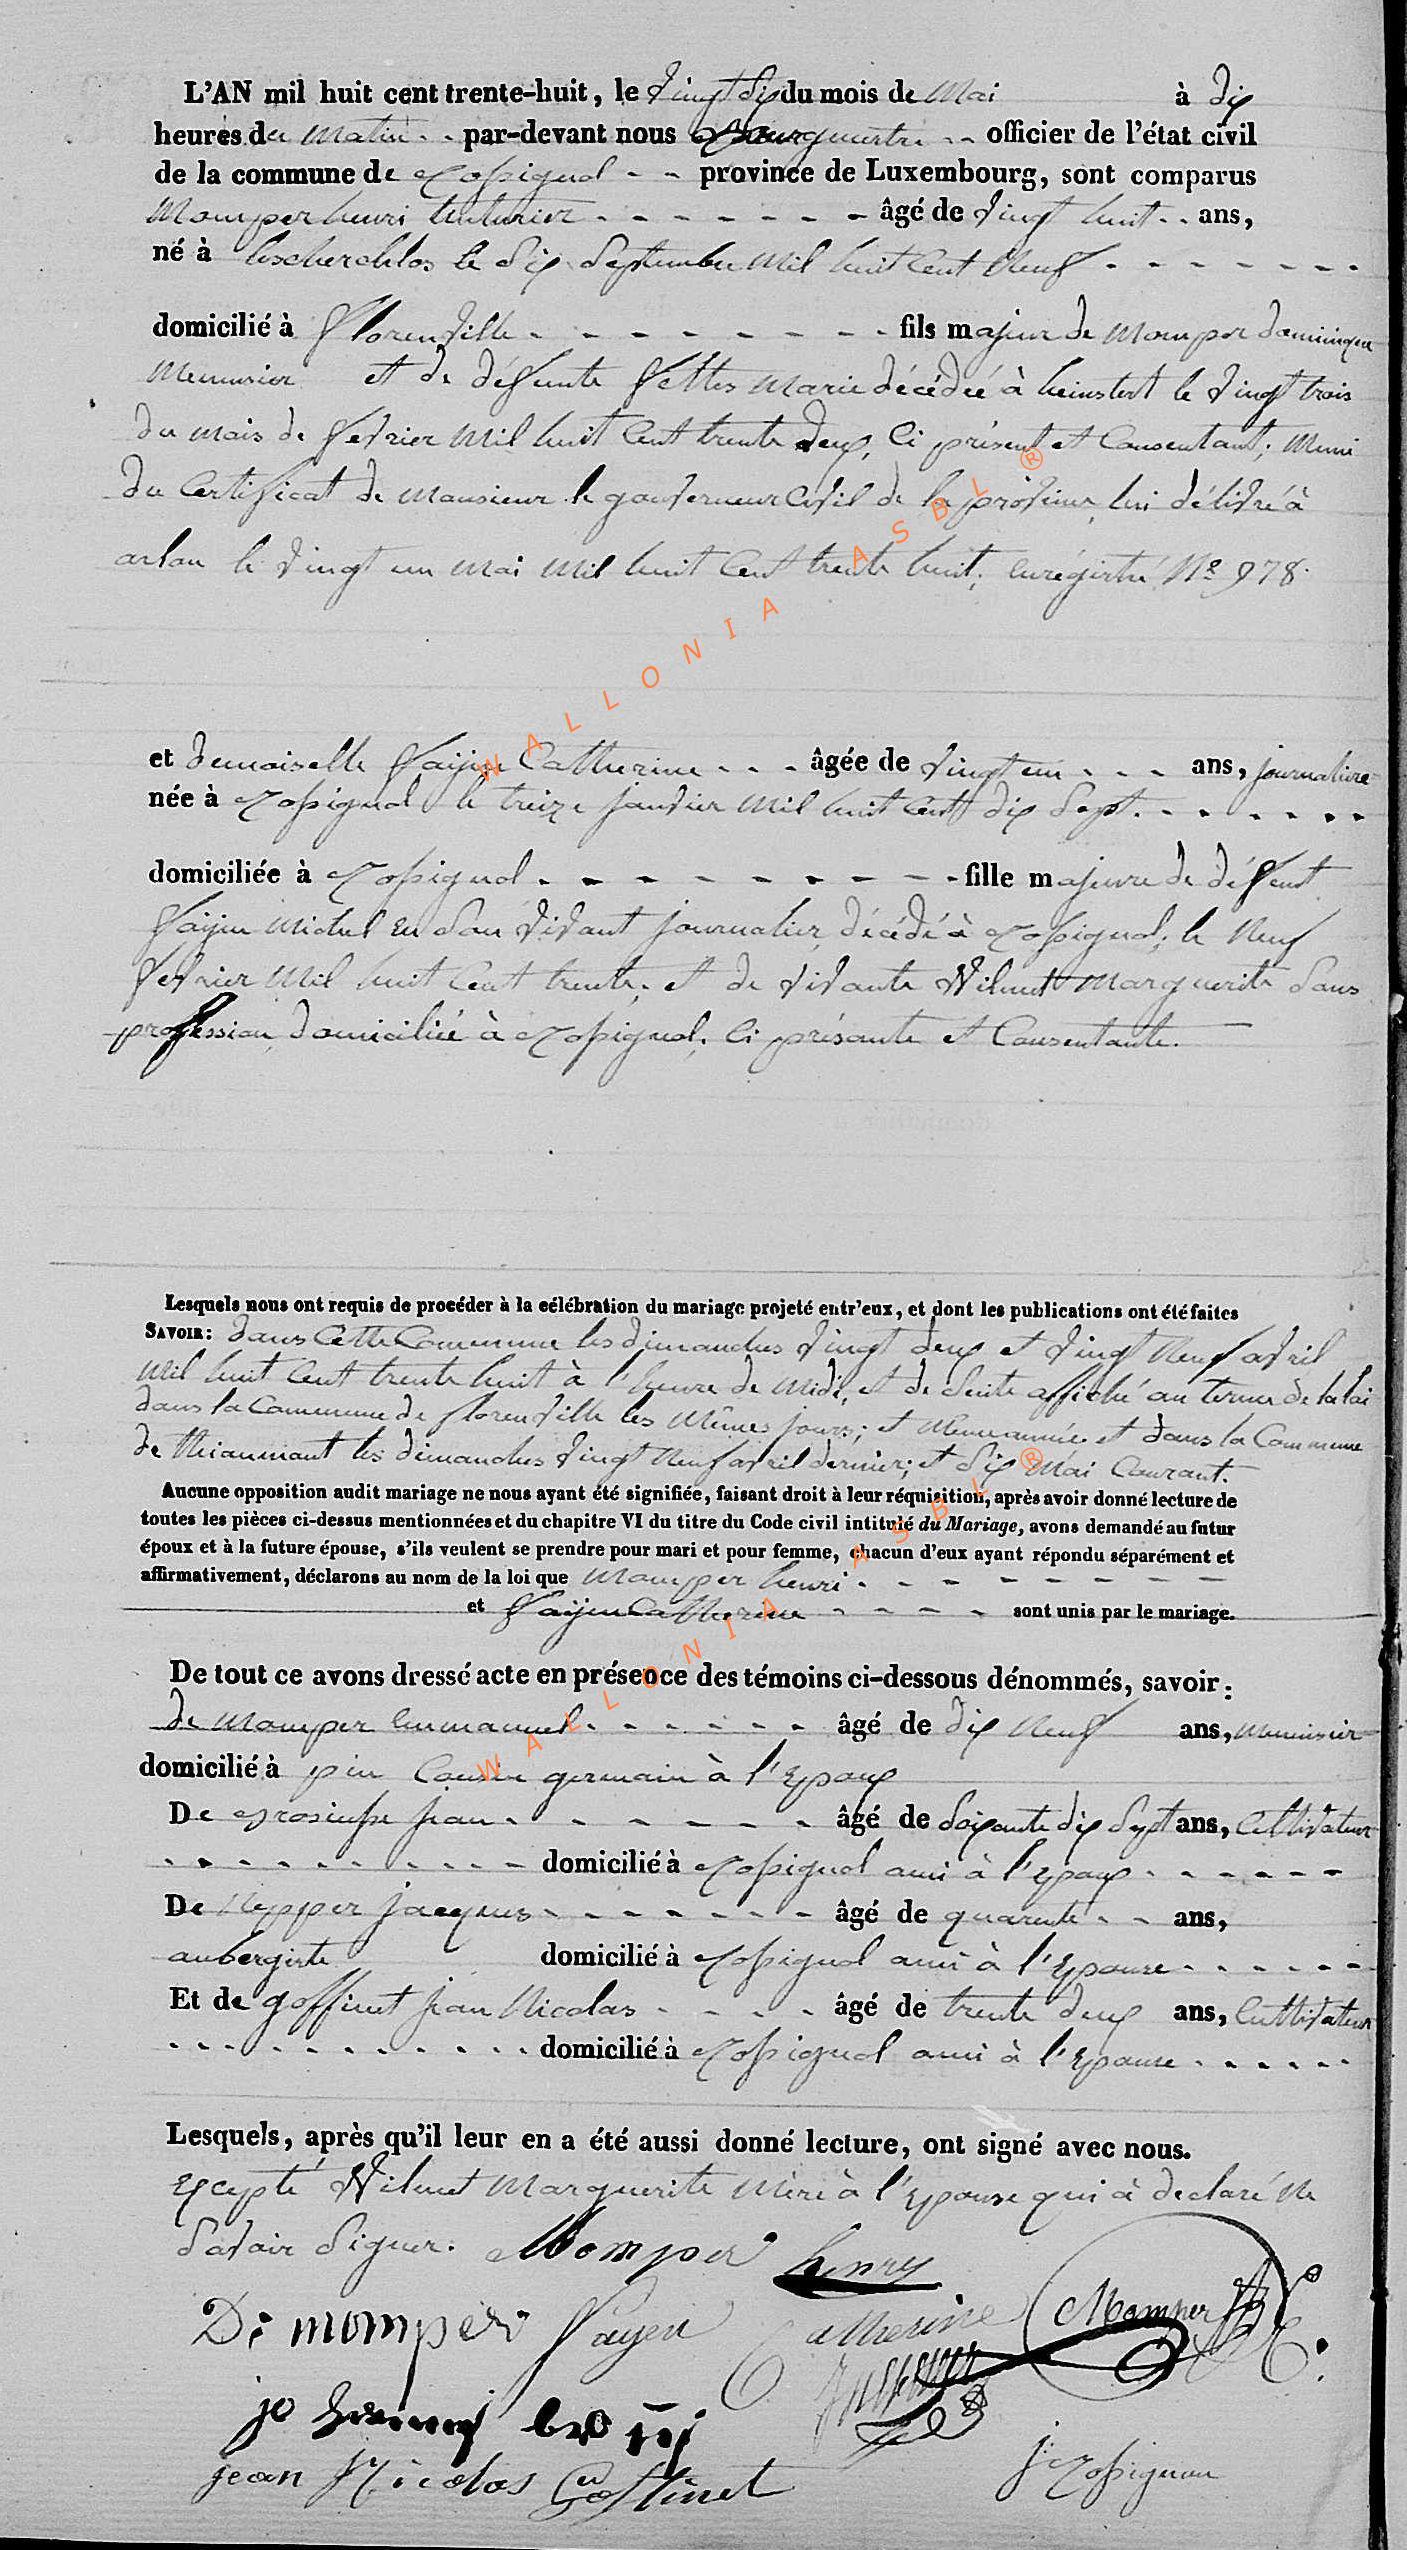 L'AN mil huit cent trente-huit, le Vingt Six du mois de Mai à dix
heures du Matin par-devant nous Bourgmestre officier de l'état civil
de la commune de Rossignol province de Luxembourg, sont comparus
Momper henri teinturier âgé de Vingt huit ans,
né à le Six Septembre Mil huit Cent Neuf
domicilié à florenville fils majeur de Momper dominique
Menuisier et de défunte Marie décédée à heinstert le Vingt trois
du mois de fevrier Mil huit Cent trente deux, Ci présent et Consentant; Muni
du Certificat de Monsieur le gouverneur Civil de la province, lui délivré à
arlon le Vingt un Mai Mil huit Cent trente huit, enrégistré Nº 978.
et demoiselle Faijen Catherine âgée de Vingt un ans, journaliere
née à Rossignol le treize janvier Mil huit Cent dix Sept.
domiciliée à Rossignol fille majeure de défunt
Faijen Michel en Son Vivant journalier, décédé à Rossignol, le Neuf
fevrier Mil huit Cent trente, et de Vivante Wilmet Marguerite Sans
profession, domiciliée à Rossignol, Ci présante et Consentante.
Lesquels nous ont requis de procéder à la célébration du mariage projeté entr'eux, et dont les publications ont été faites
SAVOIR: dans Cette Commune les dimanches Vingt deux et Vingt Neuf avril
Mil huit Cent trente huit à l'heure de Midi, et de Suite affiché au terme de la loi
dans la Commune de florenville les Mêmes jours; et Même année et dans la Commune
de thiaumont les dimanches Vingt Neuf avril dernier; et Six Mai Courant.
Aucune opposition audit mariage ne nous ayant été signifiée, faisant droit à leur réquisition, après avoir donné lecture de
toutes les pièces ci-dessus mentionnées et du chapitre VI du titre du Code civil intitulé du Mariage, avons demandé au futur
époux et à la future épouse, s'ils veulent se prendre pour mari et pour femme, chacun d'eux ayant répondu séparément et
affirmativement, déclarons au nom de la loi que Momper henri
et Faijen Catherine sont unis par le mariage.
De tout ce avons dressé acte en présence des témoins ci-dessous dénommés, savoir:
de Momper Emmanuel âgé de dix Neuf ans, Menuisier
domicilié à pin Cousin germain à l'Epoux
De jean âgé de Soixante dix Sept ans, Cultivateur
domicilié à Rossignol ami à l'Epoux
De Nepper jacques âgé de quarente ans,
aubergiste domicilié à Rossignol ami à l'Epouse
Et de goffinet jean Nicolas âgé de trente deux ans, Cultivateur
domicilié à Rossignol ami à l'Epouse
Lesquels, après qu'il leur en a été aussi donné lecture, ont signé avec nous.
Excepté Wilmet Marguerite Mère à l'Epouse qui à declaré Ne
Savoir Signer. Momper henry
D: momper Fayen Catherine Momper
jean Nicolas Goffinet
WALLONIA ASBL ®
WALLONIA ASBL ®